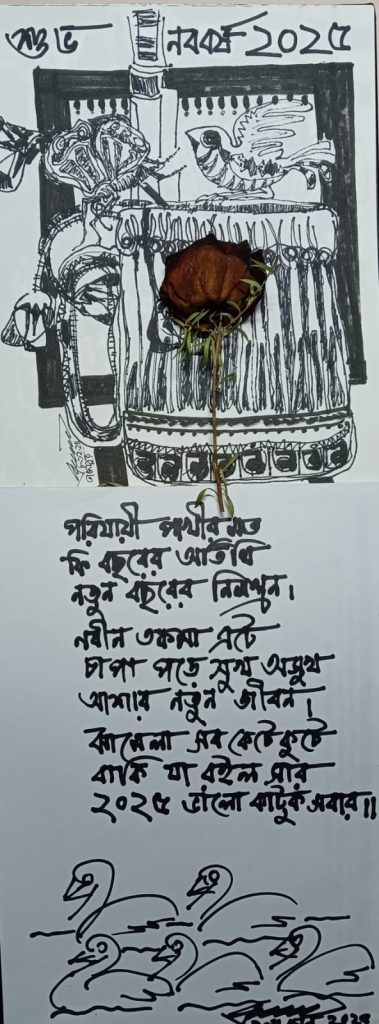 শুভ নববর্ষ ২০২৫
পরিযায়ী পাখীর মত
ফি বছরের অতিথি
নতুন বছরের নিমন্ত্রন।
নবীন তকমা এটে
চাপা পড়ে সুখ অসুখ
আশার নতুন জীবন।
ঝামেলা সব কেটেকুটে
বাকি যা রইল সার
২০২৫ ভালো কাটুক সবার॥